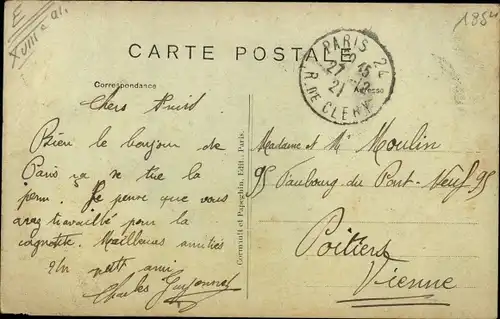 E
XVIIIe ar.
1854
CARTE POSTALE
PARIS 24
27
21
R. DE CLERY
Correspondance
Adresse
Chers
Bien le bonjour de
Paris
Je pense que vous
avez travaillé pour la
Meilleures amitiés
petit ami
Charles
Cormault et Papeghin, Edit., Paris.
Madame et Mr Moulin
95 Faubourg du Pont-Neuf 95
Poitiers
Vienne